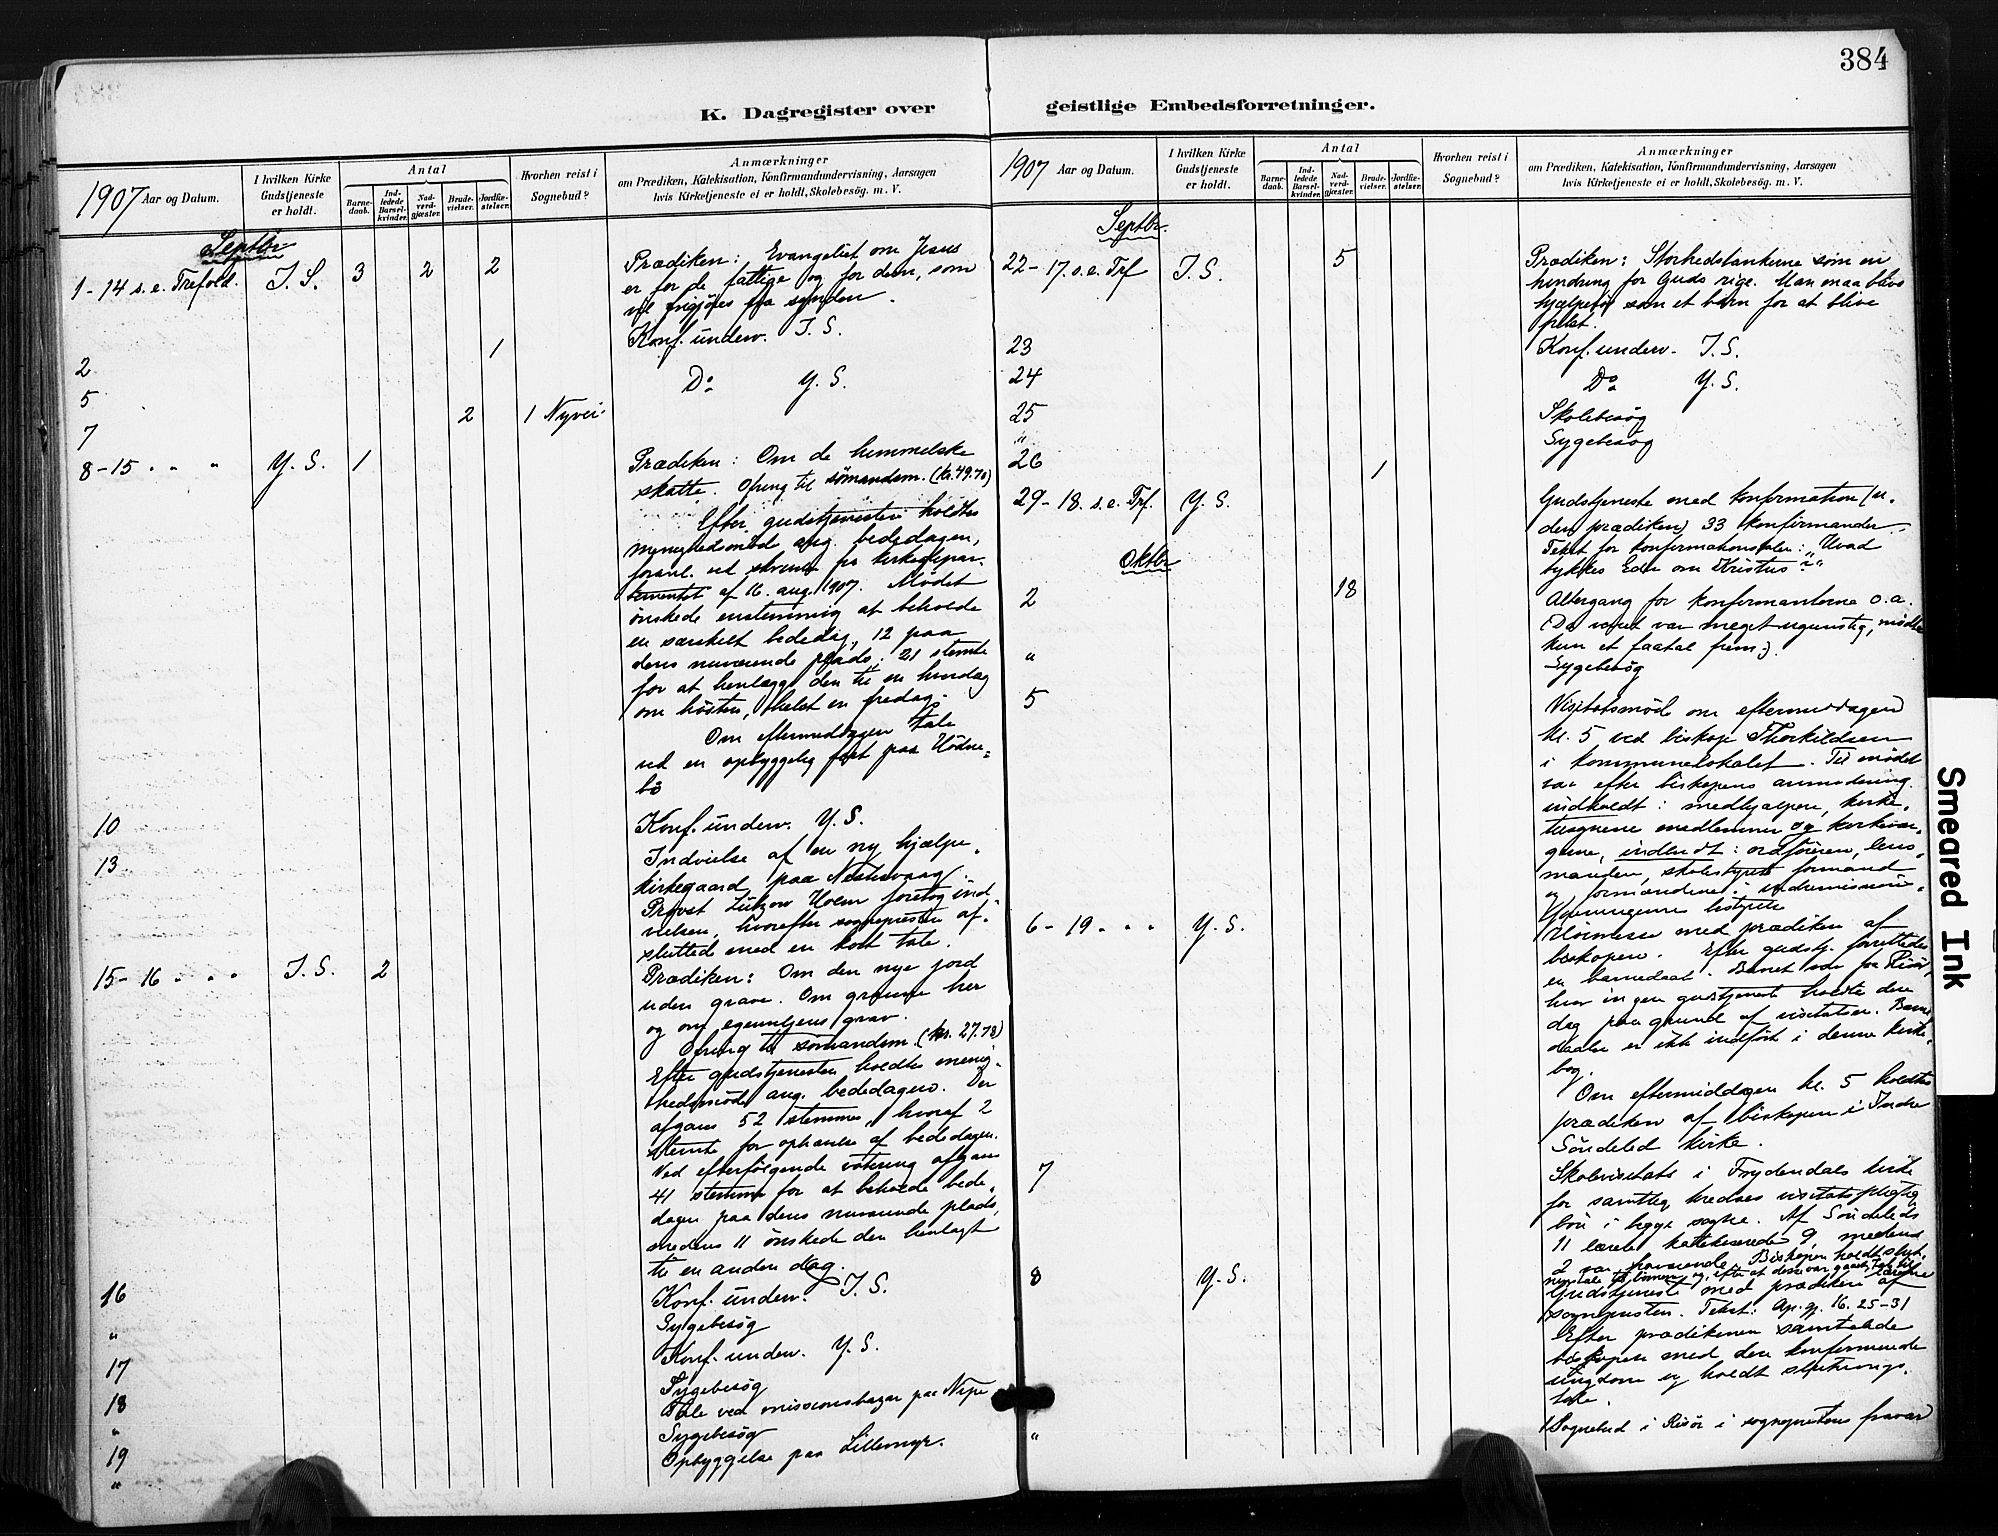 384
K. Dagregister over geistlige Embedsforretninger.
1907 Aar og Datum.
I hvilken Kirke Gudstjeneste er holdt.
Antal
Barnedaab.
Indledede Barselkvinder.
Nadverdgjæster.
Brudevielser.
Jordfæstelser.
Hvorhen reist i Sognebud?
Anmærkninger
om Prædiken, Katekisation, Konfirmandundervisning, Aarsagen
hvis Kirketjeneste ei er holdt, Skolebesøg. m. V.
Septbr
1-14 s. e. Trefold. I. S. 3 2 2
Prædiken: Evangeliet om Jesus
er for de fattige og for dem, som
vil frigjøres fra synden.
2 1 Konf. underv. I. S.
5 Do Y. S.
7 2 1 Nyvei
8-15 " " " Y. S. 1
Prædiken: Om de himmelske
skatte. Ofring til sømandsm. (kr. 49.70)
Efter gudstjenesten holdtes
menighedsmøde ang. bededagen,
foranl. ved skrivelse fra kirkedepar-
tementet af 16. aug. 1907. Mødet
ønskede enstemmig at beholde
en særskilt bededag, 12 paa
dens nuværende plads; 21 stemte
for at henlægge den til en hverdag
om høsten, helst en fredag.
Om eftermiddagen tale
ved en opbyggelig fest paa Hødne-
bø
10 Konf. underv. Y. S.
13 Indvielse af en ny hjælpe-
kirkegaard paa
Provst Lützow Holm foretog ind-
vielsen, hvorefter sognepresten af-
sluttede med en kort tale.
15-16 " " " I. S. 2
Prædiken: Om den nye jord
uden grave. Om gravene her
og om egenviljens grav.
Ofring til sømandsm. (kr. 27.78)
Efter gudstjenesten holdtes menig-
hedsmøde ang. bededagen. Der
afgaves 52 stemmer, hvoraf 2
stemte for ophævelse af bededagen.
Ved efterfølgende votering afgaves
41 stemmer for at beholde bede-
dagen paa dens nuværende plads,
medens 11 ønskede den henlagt
til en anden dag.
16 Konf. underv. I. S.
" Sygebesøg
17 Konf. underv. Y. S.
18 Sygebesøg
" Tale ved missionsbazar paa Nipe
19 Sygebesøg
" Opbyggelse paa Lillemyr.
1907 Aar og Datum.
I hvilken Kirke Gudstjeneste er holdt.
Antal
Barnedaab.
Indledede Barselkvinder.
Nadverdgjæster.
Brudevielser.
Jordfæstelser.
Hvorhen reist i Sognebud?
Anmærkninger
om Prædiken, Katekisation, Konfirmandundervisning, Aarsagen
hvis Kirketjeneste ei er holdt, Skolebesøg. m. V.
Septbr.
22-17. s. e. Trf I. S. 5
Prædiken: Storhedstankerne som en
hindring for Guds rige. Man maa blive
hjælpeløs som et barn for at blive
frelst.
23 Konf. underv. I. S.
24 Do Y. S.
25 Skolebesøg
" Sygebesøg
26 1
29-18. s. e. Trf. Y. S.
Gudstjeneste med konfirmation (u-
den prædiken) 33 konfirmander
Tekst for konfirmationstalen: "Hvad
tykkes Eder om Kristus?"
Oktbr
2 18
Altergang for konfirmanterne o. a.
(Da veiret var meget ugunstig, mødte
kun et faatal frem.)
" Sygebesøg
5 Visitatsmøde om eftermiddagen
kl. 5 ved biskop Thorkildsen
i kommunelokalet. Til mødet
var efter biskopens anmodning
indkaldt: medhjælpere, kirke-
tilsynene medlemmer og kirkevær-
gerne, indbudt: ordføreren, lens-
manden, skolestyrets formand
og formændene i indremissions-
foreningernes bestyrelse
6-19 " " " Y. S.
Høimesse med prædiken af
biskopen. Efter gudstj. forrettedes
en barnedaab. Barnet var fra Risør,
hvor ingen gudstjeneste holdtes den
dag paa grund af visitatsen. Barne-
daaben er ikke indført i denne kirke-
bog.
Om eftermiddagen kl. 5 holdtes
prædiken af biskopen i Indre
Søndeled kirke.
7 Skolevisitats i Frydendals kirke
for samtlige kredses visitatspligtige
børn i begge sogne. Af Søndeleds
11 lærere katekiserede 9, medens
2 var fraværende. Biskopen holdt slut-
ningstale til børnene og, efter at disse var gaaet, tale til lærerne
8 Y. S.
Gudstjeneste med prædiken af
sognepresten. Tekst: Ap. gj. 16. 25-31
Efter prædikenen samtalede
biskopen med den konfirmerede
ungdom og holdt slutnings-
tale.
" 1 Sognebud i Risør i sogneprestens fravær
Smeared Ink